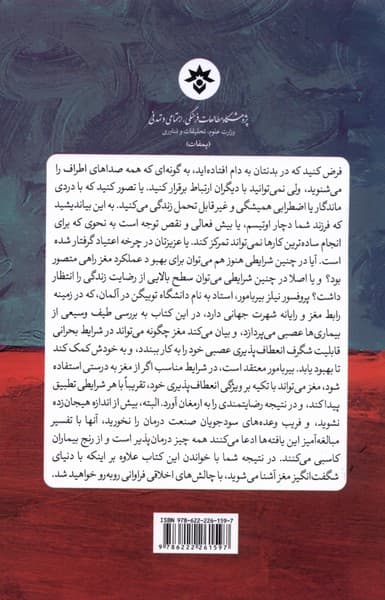 پژوهشگاه مطالعات فرهنگی، اجتماعی و تمدنی
وزارت علوم، تحقیقات و فناوری
(پمفات)
فرض کنید که در بدنتان به دام افتاده‌اید، به گونه‌ای که همه صداهای اطراف را
می‌شنوید، ولی نمی‌توانید با دیگران ارتباط برقرار کنید. یا تصور کنید که با دردی
ماندگار یا اضطرابی همیشگی و غیر قابل تحمل زندگی می‌کنید. به این بیاندیشید
که فرزند شما دچار اوتیسم، یا بیش فعالی و نقص توجه است به نحوی که برای
انجام ساده‌ترین کارها نمی‌تواند تمرکز کند. یا عزیزتان در چرخه اعتیاد گرفتار شده
است. آیا در چنین شرایطی هنوز هم می‌توان برای بهبود عملکرد مغز راهی متصور
بود؟ و یا اصلا در چنین شرایطی می‌توان سطح بالایی از رضایت زندگی را انتظار
داشت؟ پروفسور نیلز بیربامور، استاد به نام دانشگاه توبینگن در آلمان، که در زمینه
رابط مغز و رایانه شهرت جهانی دارد، در این کتاب به بررسی طیف وسیعی از
بیماری‌ها عصبی می‌پردازد، و بیان می‌کند مغز چگونه می‌تواند در شرایط بحرانی
قابلیت شگرف انعطاف‌پذیری عصبی خود را به کار ببندد، و به خودش کمک کند
تا بهبود یابد. بیربامور معتقد است، در شرایط مناسب اگر از مغز به درستی استفاده
شود، مغز می‌تواند با تکیه بر ویژگی انعطاف‌پذیری خود، تقریباً با هر شرایطی تطبیق
پیدا کند، و در نتیجه رضایتمندی را به ارمغان آورد. البته، بیش از اندازه هیجان‌زده
نشوید، و فریب وعده‌های سودجویان صنعت درمان را نخورید، آنها با تفسیر
مبالغه‌آمیز این یافته‌ها ادعا می‌کنند همه چیز درمان‌پذیر است و از رنج بیماران
کاسبی می‌کنند. در نتیجه شما با خواندن این کتاب علاوه بر اینکه با دنیای
شگفت‌انگیز مغز آشنا می‌شوید، با چالش‌های اخلاقی فراوانی روبه‌رو خواهید شد.
ISBN 978-622-226-159-7
9786222261597